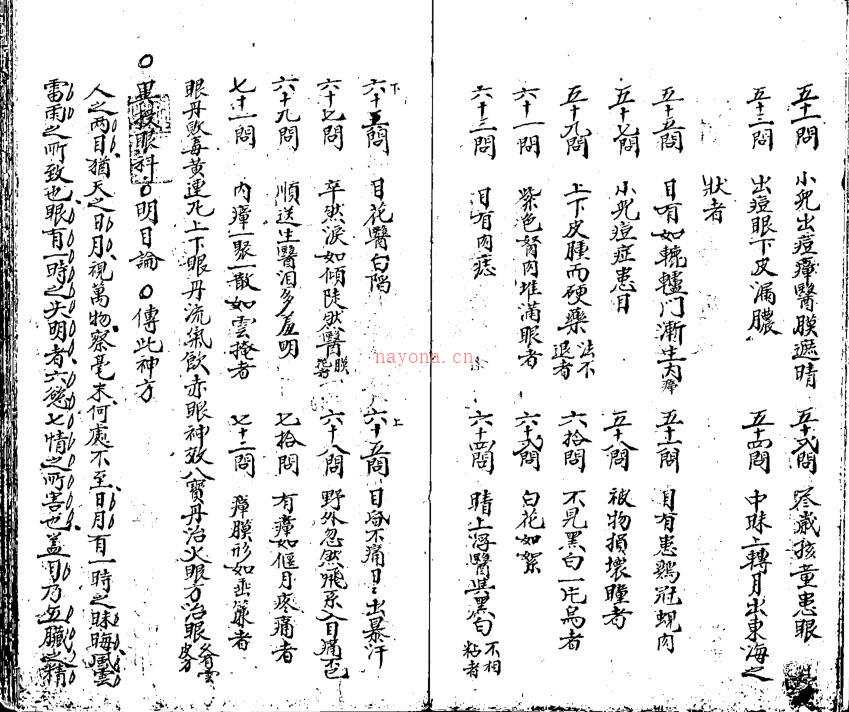 五十一問 小兒出痘瘴醫膜遮睛 五十弍問 叁歲孩童患眼
五十三問 出痘眼下皮漏膿 五十四問 中昧上轉月出東海之
狀者
五十五問 目有如轆轤門漸生内瘴 五十六問 目有患鷄冠蜆肉
五十七問 小兒痘症患目 五十八問 被物損壞瞳者
五十九問 上下皮腫而硬藥法不退者 六拾問 不見黑白一片烏者
六十一問 紫色胬肉堆滿眼者 六十弍問 白花如絮
六十三問 泪有肉痣 六十四問 睛上浮醫與黑白不相粘者
下 六十五問 目花醫白陷 上 六十五問 目 不痛日日出暴汗
六十七問 卒然淚如傾陡然醫膜 六十八問 野外忽然飛絲入目痛
六十九問 順送生醫泪多羞明 七拾問 有瘴如偃月疼痛者
七十一問 内瘴一聚一散如雲掩者 七十二問 瘴膜形如垂簾者
眼丹敗毒黃連凡上下眼丹流氣飲赤眼神效八寶丹治火眼方治眼
黑 眼科 明目論 傳此神方
人之两目猶天之日月視萬物察毫末何處不至日月有一時之昧晦風雲
雷雨之所致也眼有一時之失明者六慾七情之所害也盖目乃五臟之精
nayona.cn